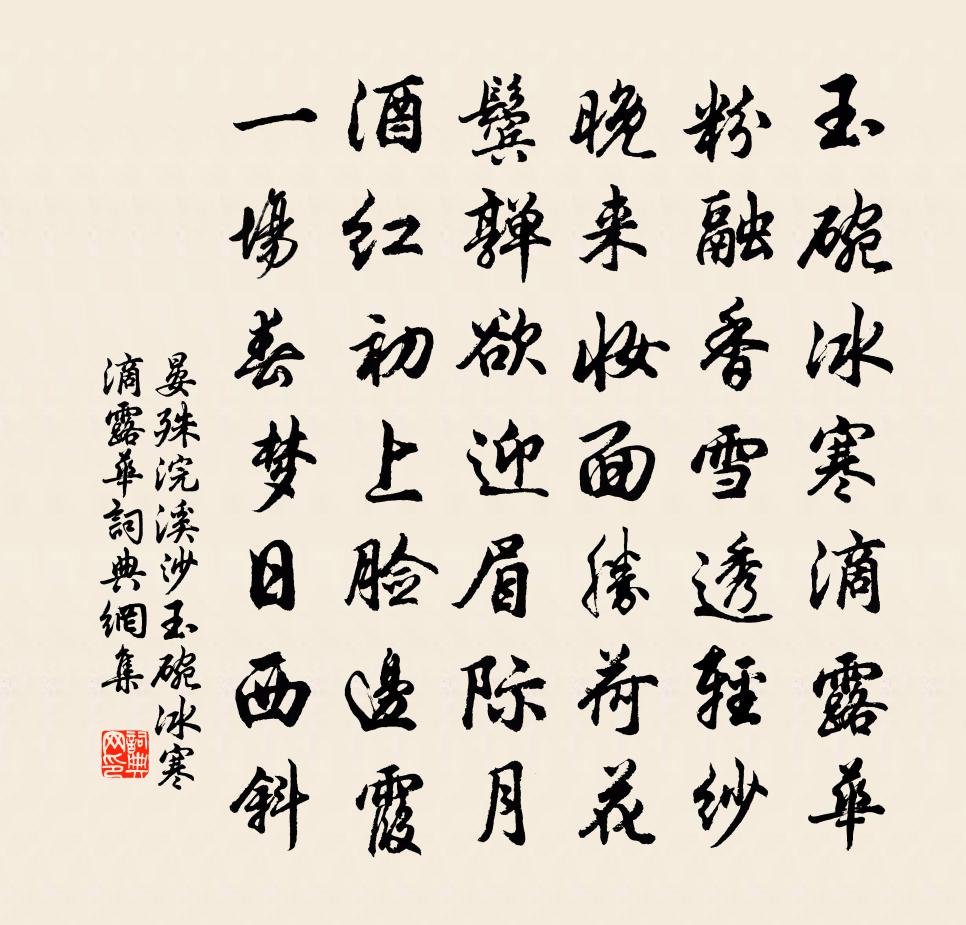 玉碗冰寒滴露華
粉融香雪透輕紗
晚来妆面勝荷花
鬓嚲欲迎眉际月
酒红初上脸邊霞
一場春梦日西斜
晏殊浣溪沙玉碗冰寒
滴露華詞典網集
詞典网印